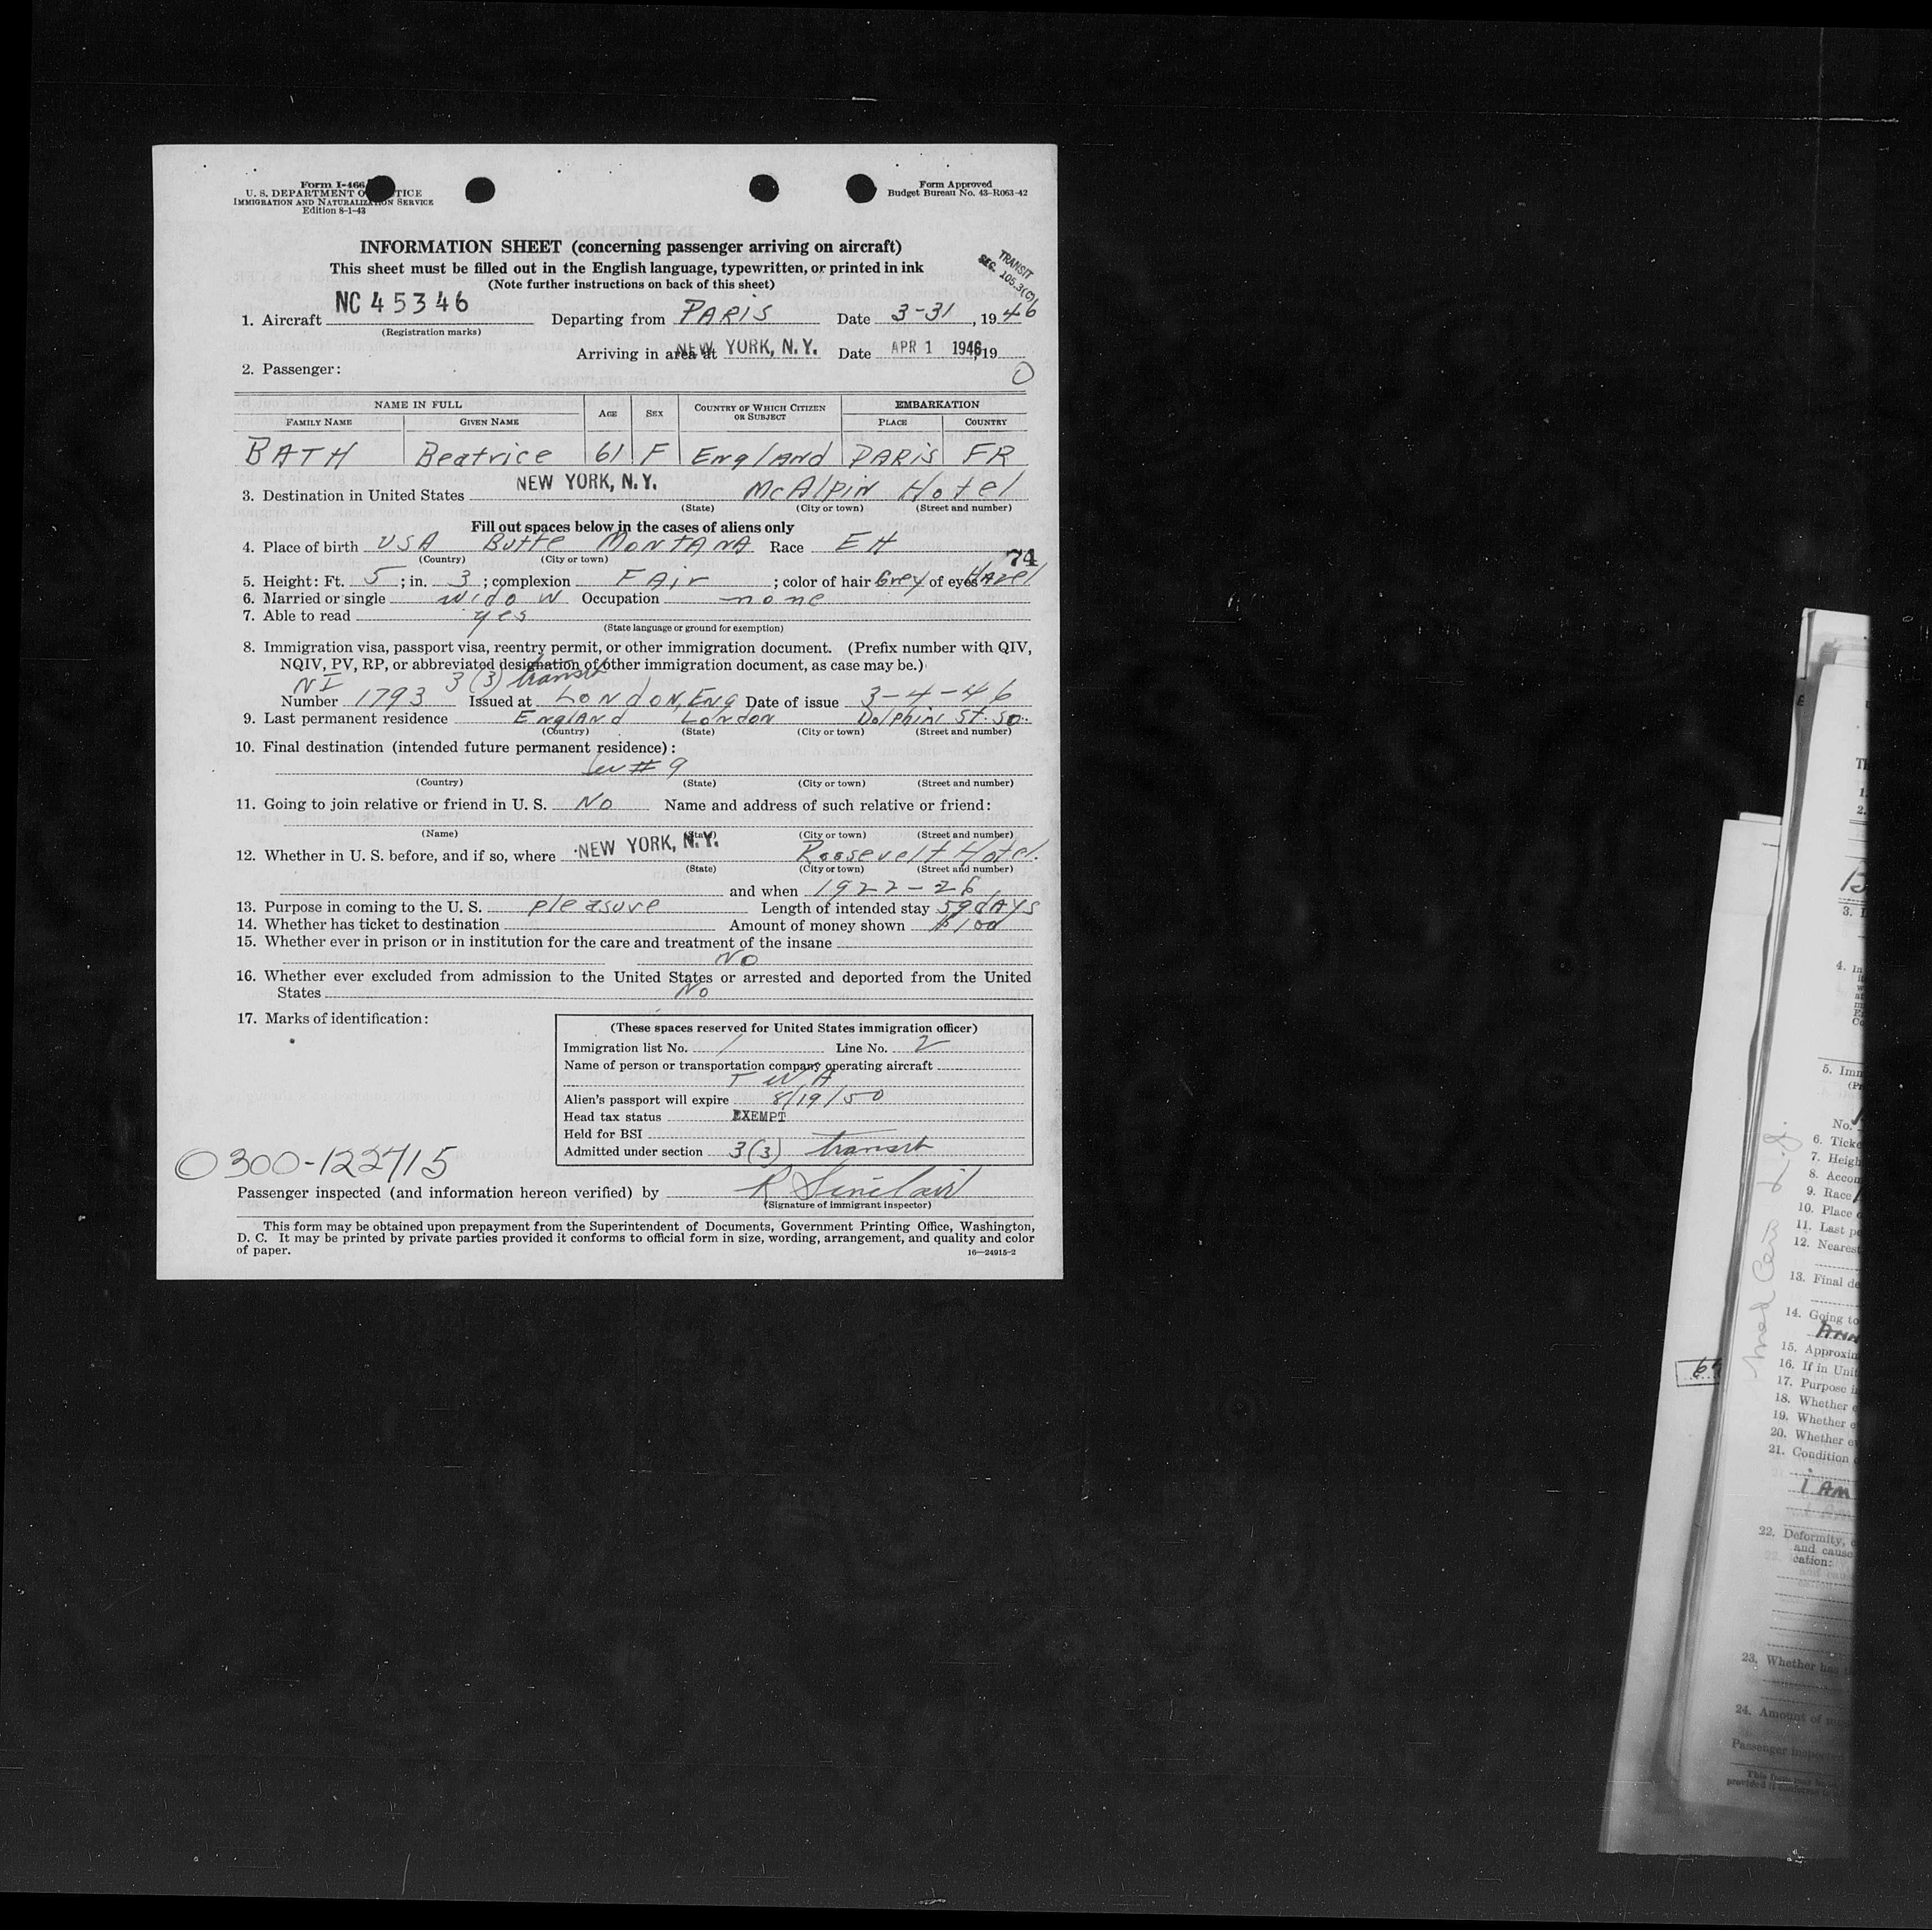 Form I-466
U. S. DEPARTMENT O TICE
IMMIGRATION AND NATURALIZATION SERVICE
Edition 8-1-43
Form Approved
Budget Bureau No. 43-R063-42
INFORMATION SHEET (concerning passenger arriving on aircraft)
This sheet must be filled out in the English language, typewritten, or printed in ink
(Note further instructions on back of this sheet)
TRANSIT
SEC. 105.3(C)
1. Aircraft NC 45346 Departing from PARIS Date 3-31, 1946
(Registration marks)
Arriving in area at NEW YORK, N.Y. Date APR 1 1946, 19
2. Passenger: O
NAME IN FULL AGE SEX COUNTRY OF WHICH CITIZEN OR SUBJECT EMBARKATION
FAMILY NAME GIVEN NAME PLACE COUNTRY
BATH Beatrice 61 F England PARIS FR
3. Destination in United States NEW YORK, N.Y. McAlpin Hotel
(State) (City or town) (Street and number)
Fill out spaces below in the cases of aliens only
4. Place of birth USA Butte MONTANA Race EH
(Country) (City or town)
74
5. Height: Ft. 5; in. 3; complexion FAir; color of hair Grey of eyes HAzel
6. Married or single widow Occupation none
7. Able to read yes
(State language or ground for exemption)
8. Immigration visa, passport visa, reentry permit, or other immigration document. (Prefix number with QIV,
NQIV, PV, RP, or abbreviated designation of other immigration document, as case may be.)
NI 3(3) transit
Number 1793 Issued at LONdON, ENG Date of issue 3-4-46
9. Last permanent residence England London Dolphins St. So.
(Country) (State) (City or town) (Street and number)
10. Final destination (intended future permanent residence):
# 9
(Country) (State) (City or town) (Street and number)
11. Going to join relative or friend in U. S. No Name and address of such relative or friend:
(Name) (State) (City or town) (Street and number)
12. Whether in U. S. before, and if so, where NEW YORK, N.Y. Roosevelt Hotel.
(State) (City or town) (Street and number)
and when 1922-26
13. Purpose in coming to the U. S. pleasure Length of intended stay 59 dAys
14. Whether has ticket to destination Amount of money shown $100
15. Whether ever in prison or in institution for the care and treatment of the insane
No
16. Whether ever excluded from admission to the United States or arrested and deported from the United
States No
17. Marks of identification:
(These spaces reserved for United States immigration officer)
Immigration list No. 1 Line No. 2
Name of person or transportation company operating aircraft
TWA
Alien's passport will expire 8/19/50
Head tax status EXEMPT
Held for BSI
Admitted under section 3(3) transit
0300-122715
Passenger inspected (and information hereon verified) by R Sinclair
(Signature of immigrant inspector)
This form may be obtained upon prepayment from the Superintendent of Documents, Government Printing Office, Washington,
D. C. It may be printed by private parties provided it conforms to official form in size, wording, arrangement, and quality and color
of paper.
16—24915-2
1.
2.
3.
4. In
5. Imm
No.
6. Ticke
7. Heigh
8. Accom
9. Race
10. Place
11. Last pe
12. Nearest
13. Final de
14. Going to
15. Approxim
16. If in Unit
17. Purpose i
18. Whether e
19. Whether e
20. Whether e
21. Condition
i AM
22. Deformity,
and cause
cation:
23. Whether has
24. Amount of
Passenger inspected
This form may be
provided it conforms